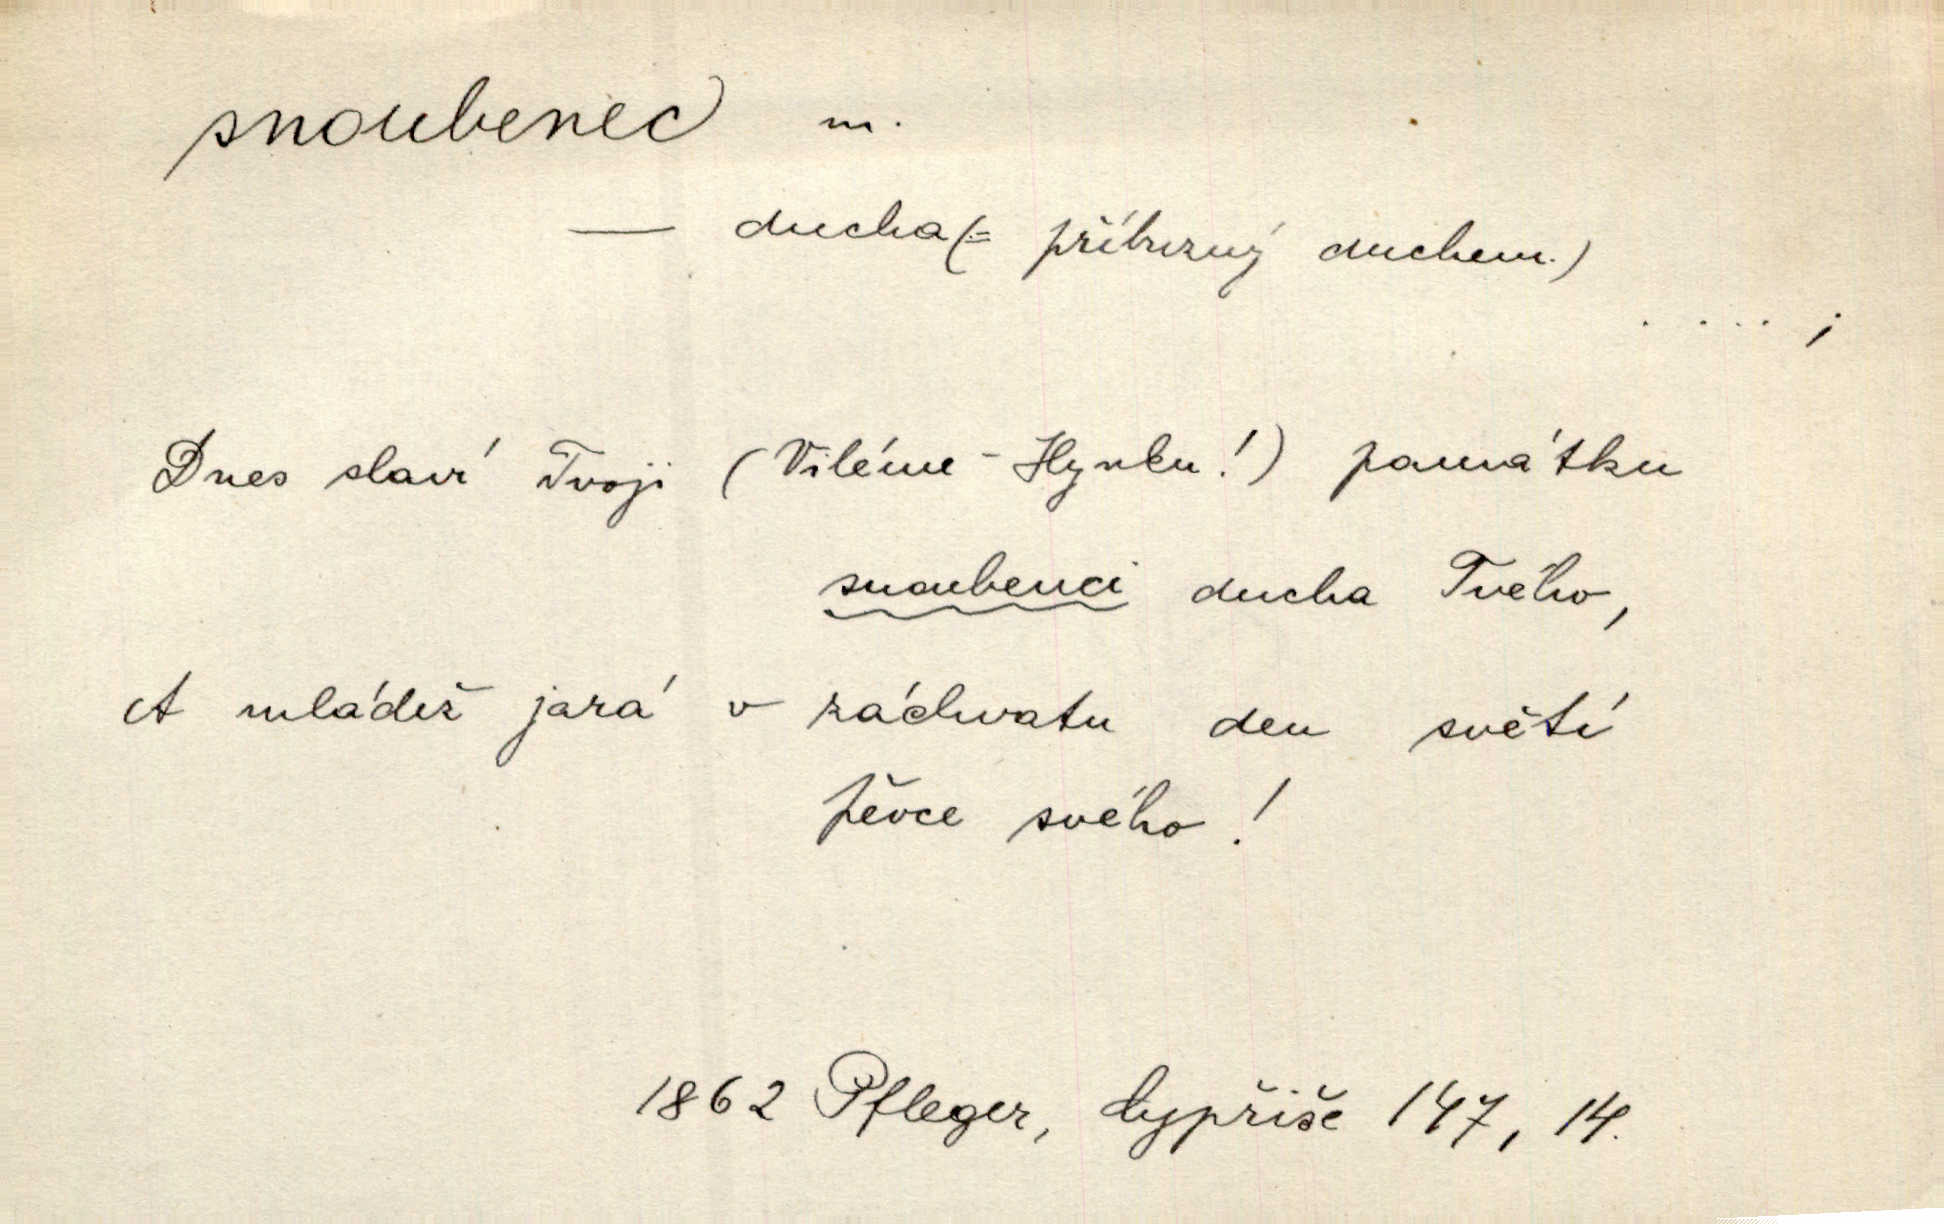 snoubenec m.
— ducha (= příbuzný duchem.)
. . . . ;
Dnes slaví Tvoji (Viléme - Hynku!) památku
snoubenci ducha Tvého,
A mládež jará v záchvatu den světí
pěvce svého!
1862 Pfleger, Cypřiše 147, 14.